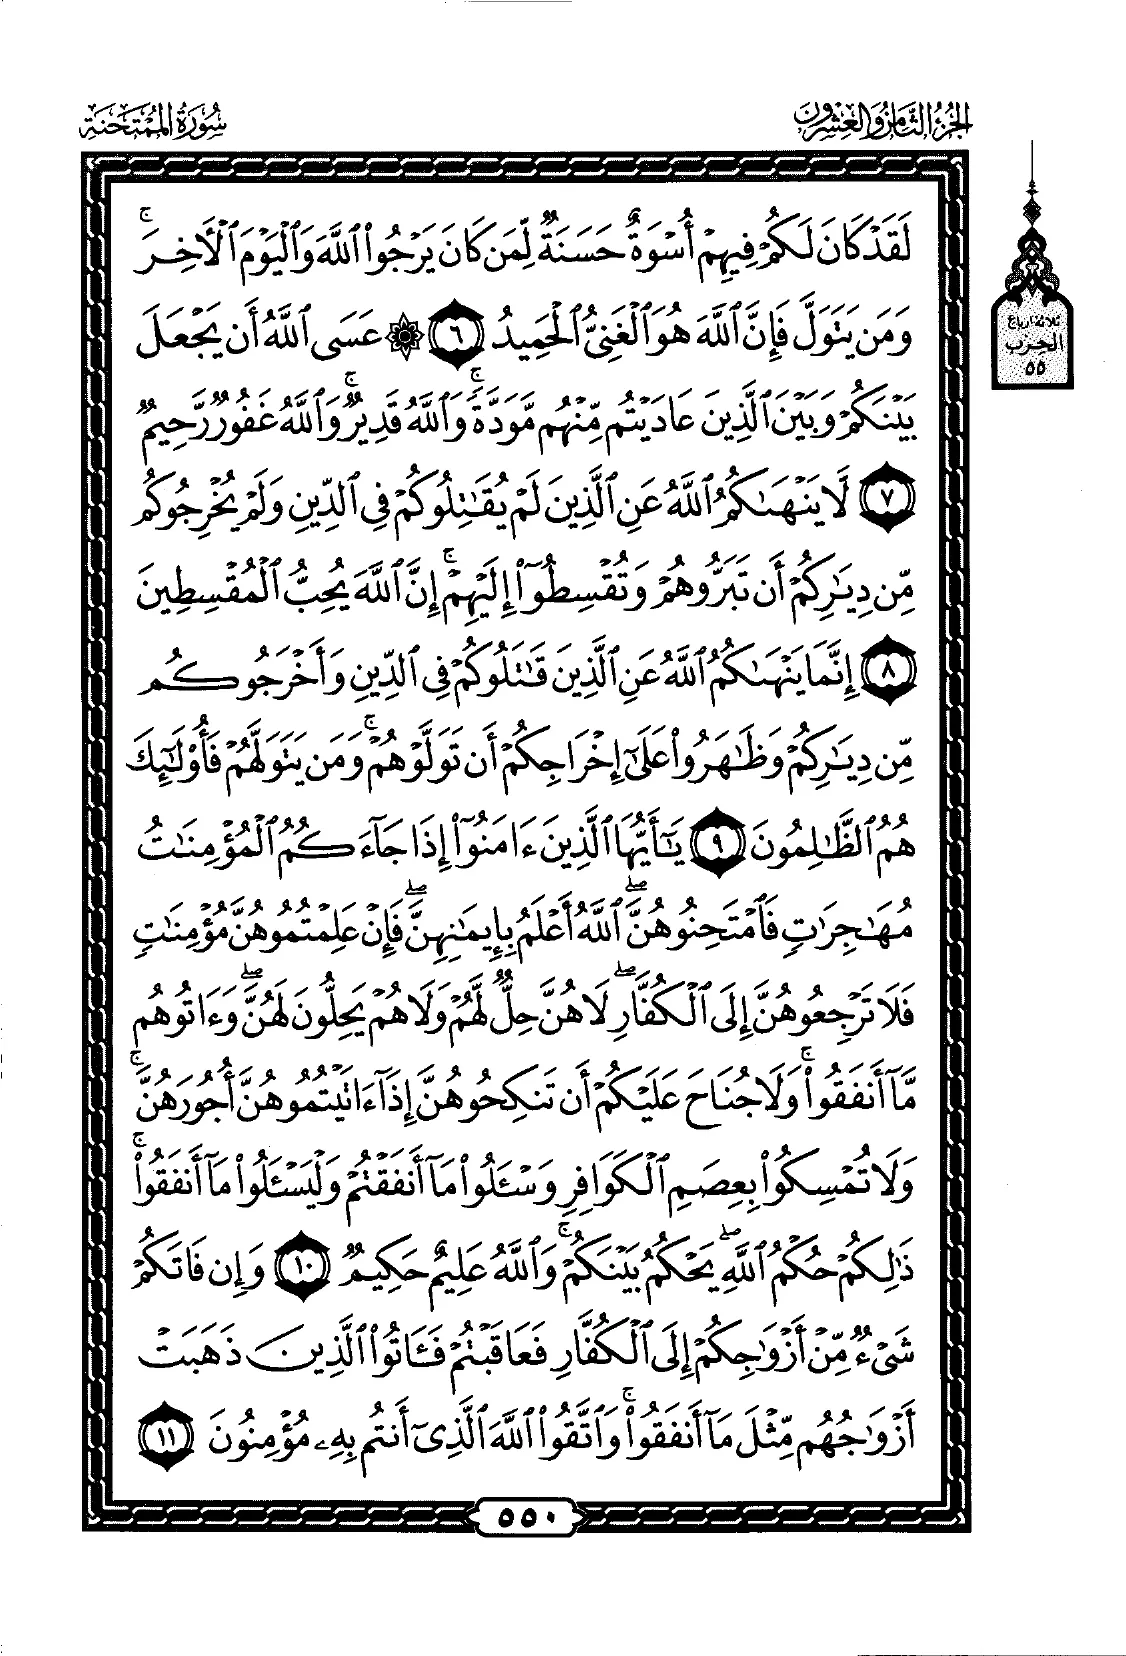 الجزء الثامن والعشرون
سورة الممتحنة
ثلاثة ارباع
الحزب
٥٥
لَقَدْ كَانَ لَكُمْ فِيهِمْ أُسْوَةٌ حَسَنَةٌ لِّمَن كَانَ يَرْجُوا۟ ٱللَّهَ وَٱلْيَوْمَ ٱلْأَخِرَ ۚ
وَمَن يَتَوَلَّ فَإِنَّ ٱللَّهَ هُوَ ٱلْغَنِىُّ ٱلْحَمِيدُ ٦ ۞ عَسَى ٱللَّهُ أَن يَجْعَلَ
بَيْنَكُمْ وَبَيْنَ ٱلَّذِينَ عَادَيْتُم مِّنْهُم مَّوَدَّةً ۚ وَٱللَّهُ قَدِيرٌ ۚ وَٱللَّهُ غَفُورٌ رَّحِيمٌ
٧ لَّا يَنْهَىٰكُمُ ٱللَّهُ عَنِ ٱلَّذِينَ لَمْ يُقَـٰتِلُوكُمْ فِى ٱلدِّينِ وَلَمْ يُخْرِجُوكُم
مِّن دِيَـٰرِكُمْ أَن تَبَرُّوهُمْ وَتُقْسِطُوٓا۟ إِلَيْهِمْ ۚ إِنَّ ٱللَّهَ يُحِبُّ ٱلْمُقْسِطِينَ
٨ إِنَّمَا يَنْهَىٰكُمُ ٱللَّهُ عَنِ ٱلَّذِينَ قَـٰتَلُوكُمْ فِى ٱلدِّينِ وَأَخْرَجُوكُم
مِّن دِيَـٰرِكُمْ وَظَـٰهَرُوا۟ عَلَىٰٓ إِخْرَاجِكُمْ أَن تَوَلَّوْهُمْ ۚ وَمَن يَتَوَلَّهُمْ فَأُو۟لَـٰٓئِكَ
هُمُ ٱلظَّـٰلِمُونَ ٩ يَـٰٓأَيُّهَا ٱلَّذِينَ ءَامَنُوٓا۟ إِذَا جَآءَكُمُ ٱلْمُؤْمِنَـٰتُ
مُهَـٰجِرَٰتٍ فَٱمْتَحِنُوهُنَّ ۖ ٱللَّهُ أَعْلَمُ بِإِيمَـٰنِهِنَّ ۖ فَإِنْ عَلِمْتُمُوهُنَّ مُؤْمِنَـٰتٍ
فَلَا تَرْجِعُوهُنَّ إِلَى ٱلْكُفَّارِ ۖ لَا هُنَّ حِلٌّ لَّهُمْ وَلَا هُمْ يَحِلُّونَ لَهُنَّ ۖ وَءَاتُوهُم
مَّآ أَنفَقُوا۟ ۚ وَلَا جُنَاحَ عَلَيْكُمْ أَن تَنكِحُوهُنَّ إِذَآ ءَاتَيْتُمُوهُنَّ أُجُورَهُنَّ ۚ
وَلَا تُمْسِكُوا۟ بِعِصَمِ ٱلْكَوَافِرِ وَسْـَٔلُوا۟ مَآ أَنفَقْتُمْ وَلْيَسْـَٔلُوا۟ مَآ أَنفَقُوا۟ ۚ
ذَٰلِكُمْ حُكْمُ ٱللَّهِ ۖ يَحْكُمُ بَيْنَكُمْ ۚ وَٱللَّهُ عَلِيمٌ حَكِيمٌ ١٠ وَإِن فَاتَكُمْ
شَىْءٌ مِّنْ أَزْوَٰجِكُمْ إِلَى ٱلْكُفَّارِ فَعَاقَبْتُمْ فَـَٔاتُوا۟ ٱلَّذِينَ ذَهَبَتْ
أَزْوَٰجُهُم مِّثْلَ مَآ أَنفَقُوا۟ ۚ وَٱتَّقُوا۟ ٱللَّهَ ٱلَّذِىٓ أَنتُم بِهِۦ مُؤْمِنُونَ ١١
٥٥٠